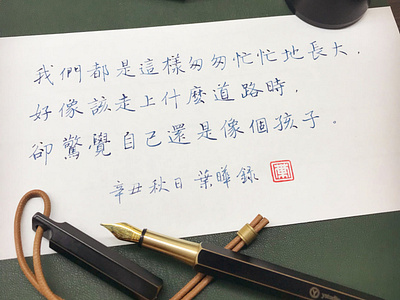 我們都是這樣匆匆忙忙地長大，
好像該走上什麼道路時，
卻驚覺自己還是像個孩子。
辛丑秋日 葉曄錄